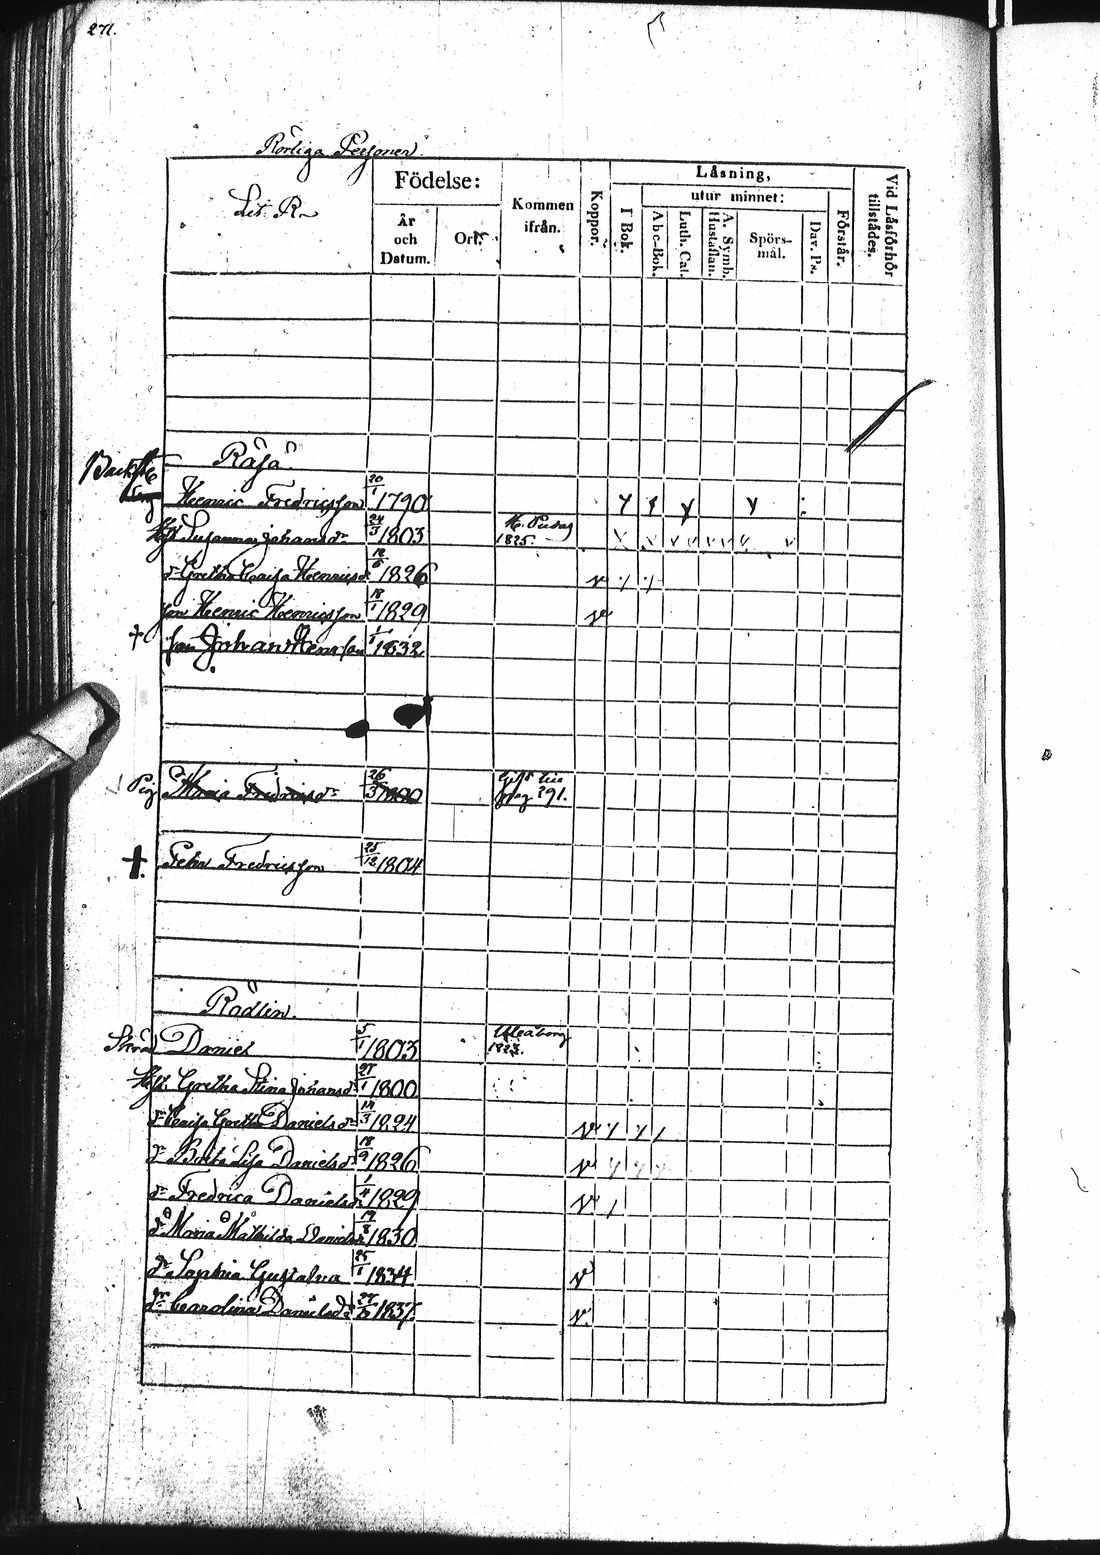 271.
Rörliga Personer
Lit. R.
Födelse:
År
och
Datum.
Ort.
Kommen
ifrån.
Koppor.
Låsning,
I Bok.
utur minnet:
Abc-Bok.
Luth. Cat.
A. Symb.
Hustaflan.
Spörs-
mål.
Dav. Ps.
Förstår.
Vid Låsförhör
tillstådes.
Räfsä
Henric Fredricsson 20/1 1790
Hust. Susanna Johansdr 24/3 1803 1825.
dr Gretha Caisa Henricsdr 12/6 1826
son Henric Henricsson 18/1 1829
+ son Johan Henrsson 1832
Pig Maria Fredricsdr 26/3 1800
+ Pehr Fredricsson 25/12 1804
Rödlin.
Daniel 5/1 1803 Uleåborg
1823.
Hust. Gretha Stina Johansdr 27/1 1800
dr Caisa Gretha Danielsdr 14/3 1824
dr Brita Lisa Danielsdr 18/9 1826
dr Fredrica Danielsdr 1/4 1829
dr Maria Mathilda Danielsdr 19/8 1830
dr Sophia Gustafva 25/1 1834
dr Carolina Danielsdr 1837.